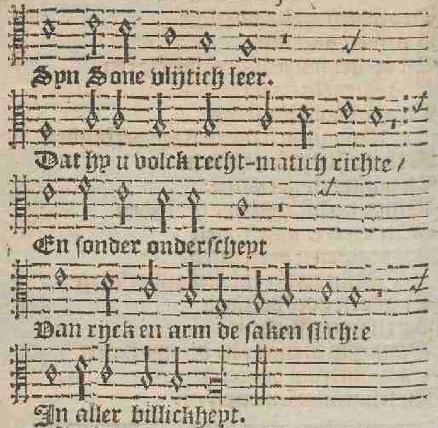 Syn Sone vlijtich leer.
Dat hy u volck recht-matich richte /
En sonder onderscheyt
Van ryck en arm de saken slichte
In aller billickheyt.